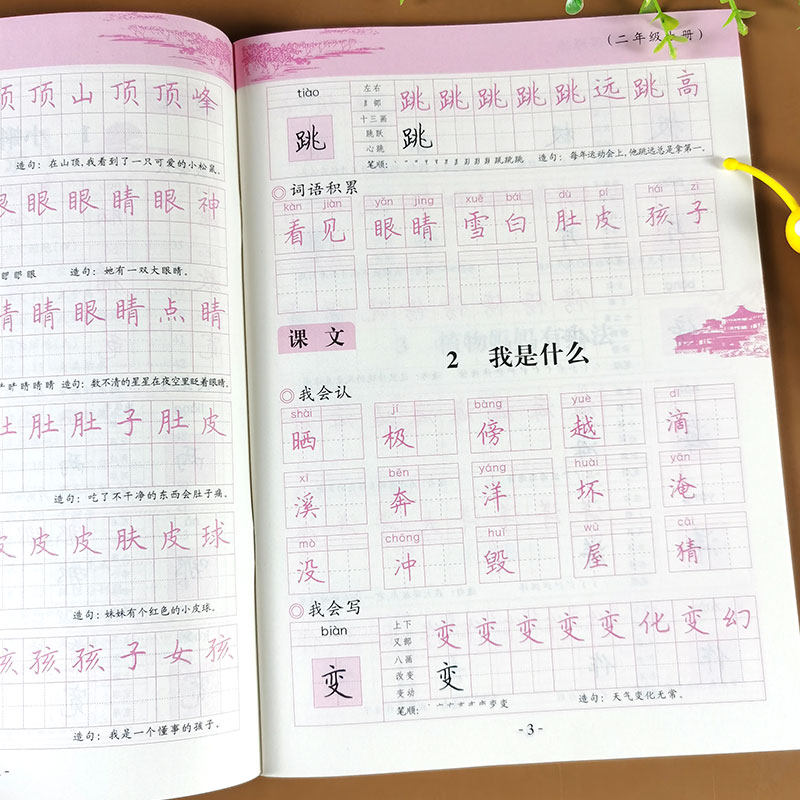 顶 顶 山 顶 顶 峰
造句：在山顶，我看到了一只可爱的小松鼠。
眼 眼 眼 睛 眼 神
造句：她有一双大眼睛。
睛 睛 眼 睛 点 睛
造句：数不清的星星在夜空里眨着眼睛。
肚 肚 肚 子 肚 皮
造句：吃了不干净的东西会肚子痛。
皮 皮 皮 肤 皮 球
造句：妹妹有个红色的小皮球。
孩 孩 孩 子 女 孩
造句：我是一个懂事的孩子。
(二年级上册)
tiào
跳
左右
十三画
跳跃
心跳
跳 跳 跳 跳 跳 远 跳 高
跳
笔顺：
造句：每年运动会上，他跳远总是拿第一。
词语积累
kàn jiàn yǎn jīng xuě bái dù pí hái zi
看见 眼睛 雪白 肚皮 孩子
课文
2 我是什么
我会认
shài jí bàng yuè dī
晒 极 傍 越 滴
xī bēn yáng huài yān
溪 奔 洋 坏 淹
mò chōng huǐ wū cāi
没 冲 毁 屋 猜
我会写
biàn
变
上下
又部
八画
改变
变动
变 变 变 变 变 化 变 幻
变
笔顺：
造句：天气变化无常。
- 3 -